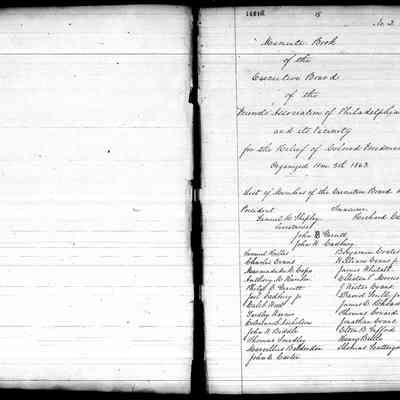 15
No. 2
Minute Book
of the
Executive Board
of the
Friends Association of Philadelphia
and its Vicinity
for the Relief of Colored Freedmen
Organized 11mo. 5th 1863.
List of Members of the Executive Board
President
Samuel R. Shipley
Treasurer
Richard
Secretaries
John B. Garrett
John W. Cadbury
Samuel
Charles Evans
Marmaduke C. Cope
Anthony M. Kimber
Philip C. Garrett
Joel Cadbury Jr
Caleb Wood
Yardley Warner
John W. Biddle
Thomas Smedley
John C. Carter
Benjamin Coates
William Evans Jr
James Whitall
Elliston P. Morris
J. Wistar Evans
David Scull Jr
James E. Rhoads
Thomas
Jonathan Evans
Elton B. Gifford
Henry Bettle
Thomas Scattergood